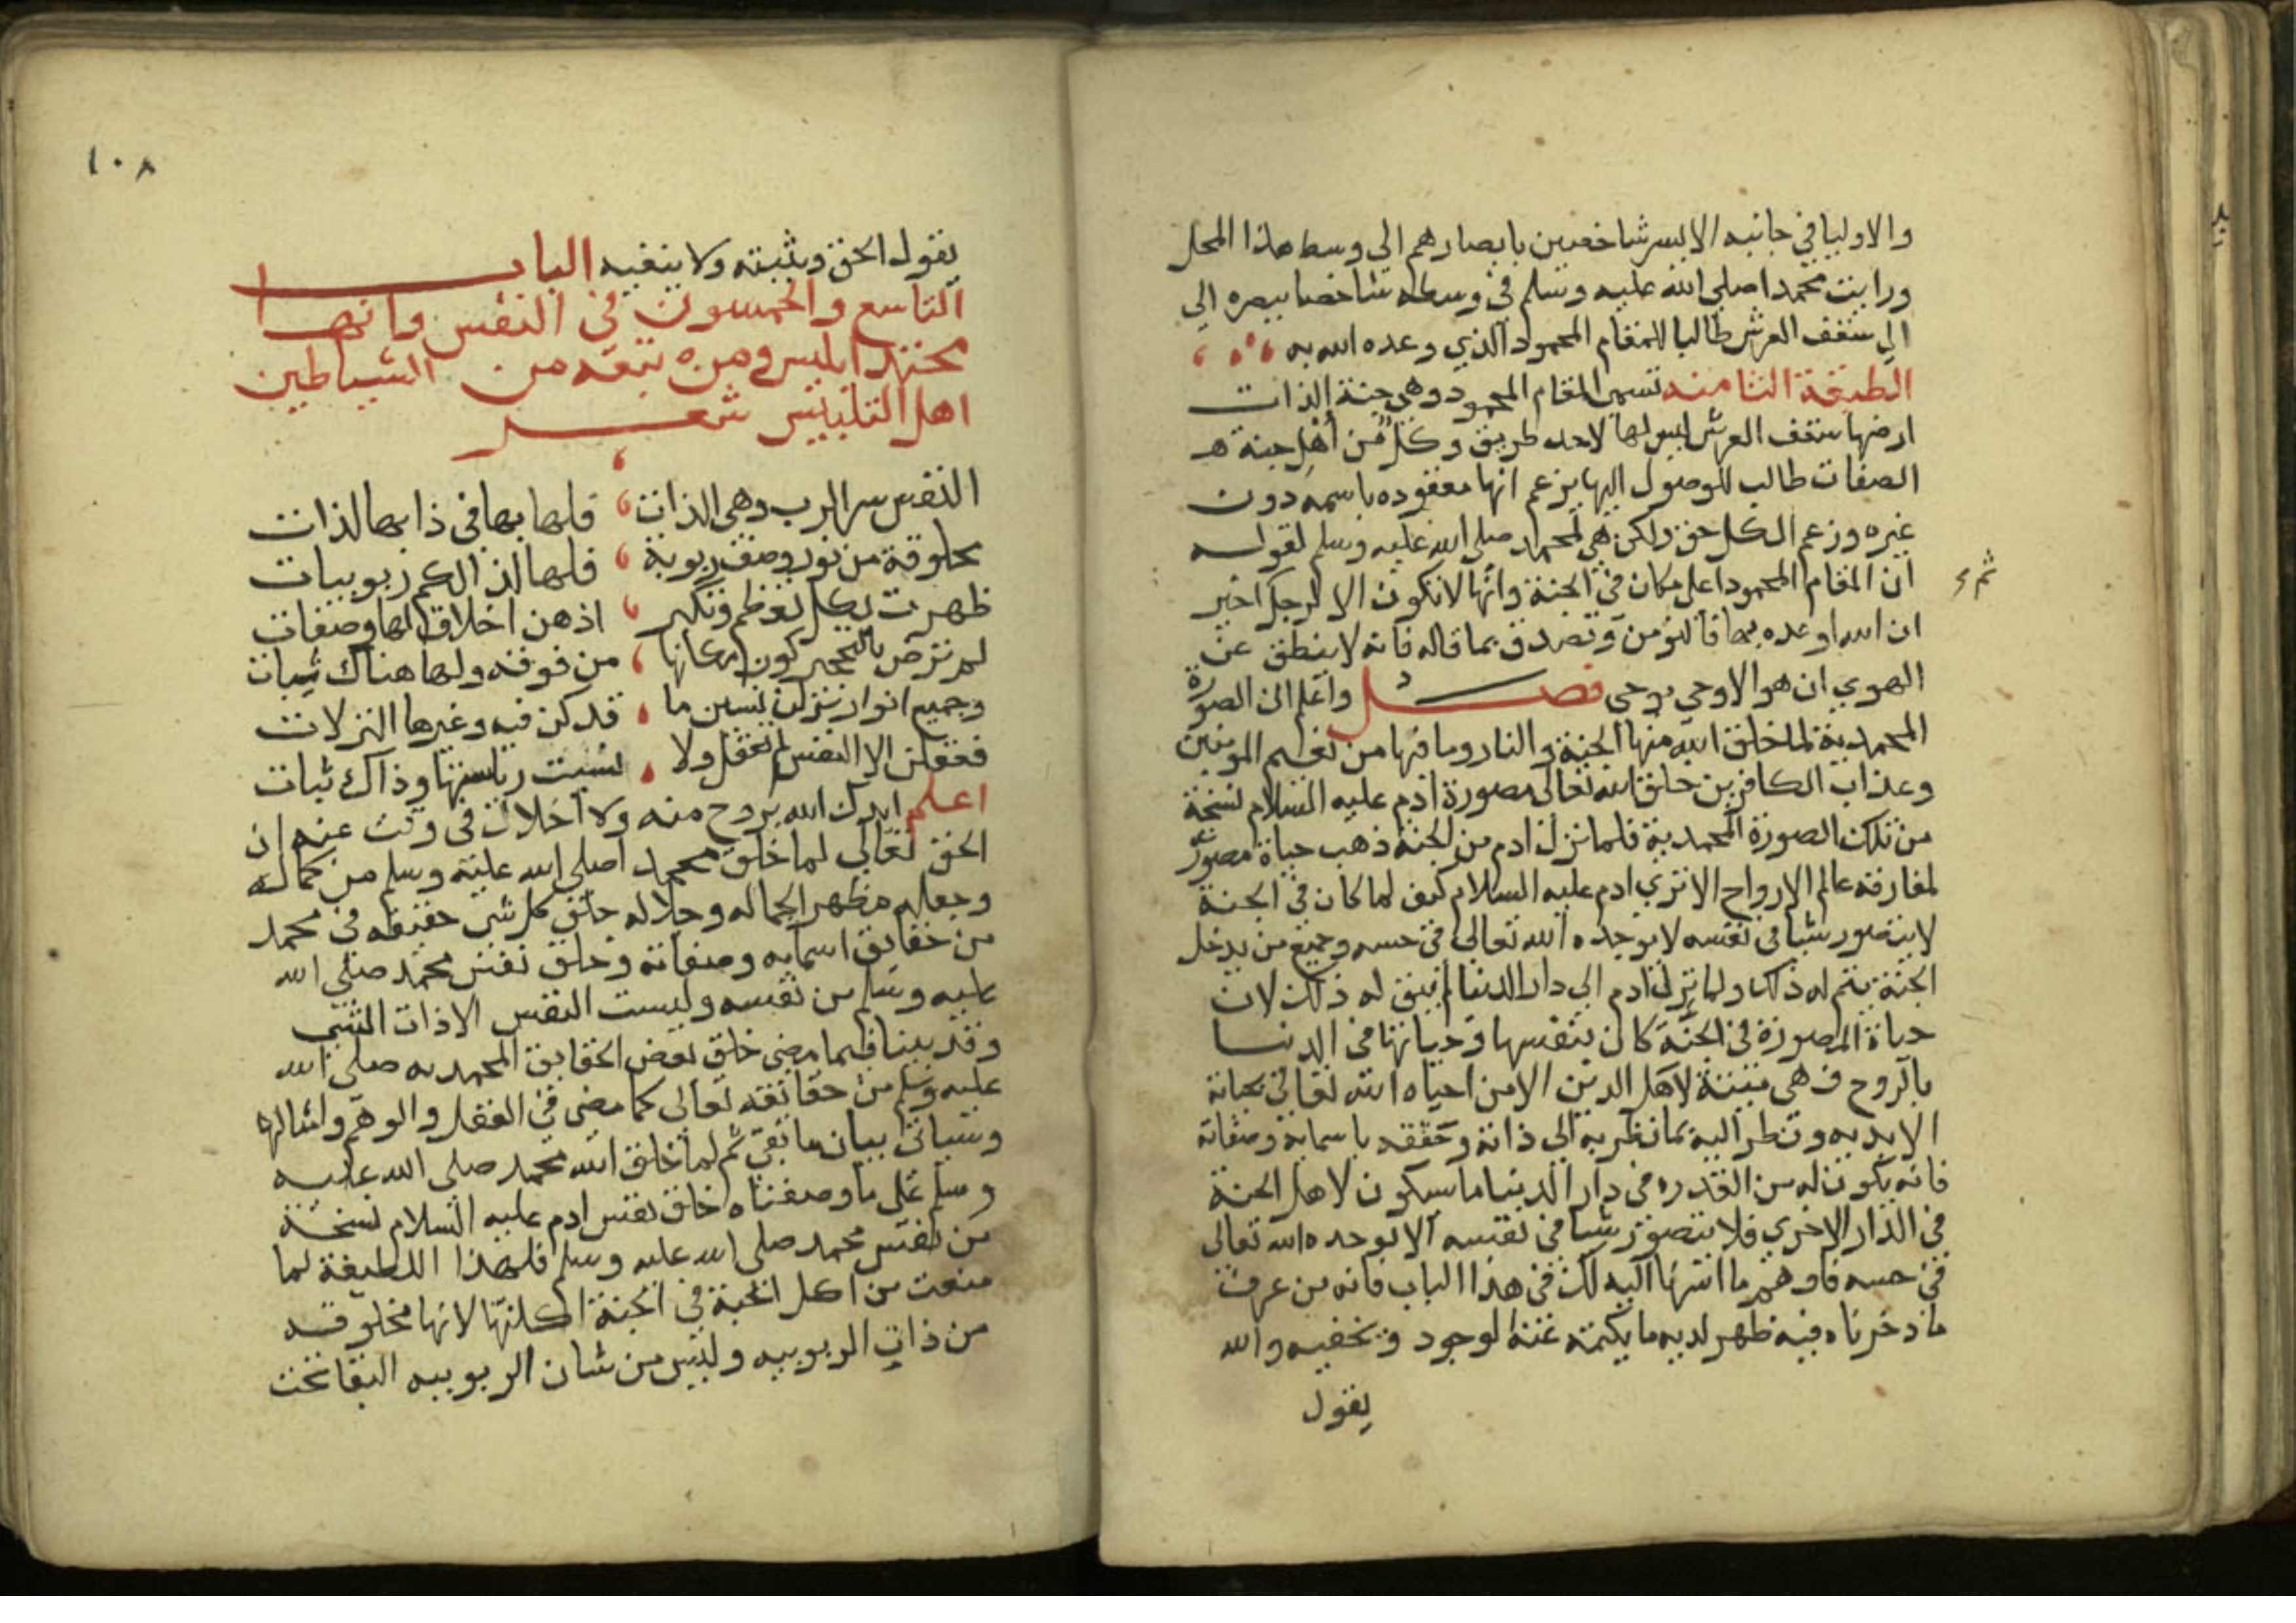 والاوليا في جانبه الايسر شاخصين بابصارهم الي وسط هذا المحل
ورايت محمدا صلى الله عليه وسلم في وسطه شاخصا ببصره الي
الي سقف العرش طالبا للمقام المحمود الذي وعده الله به
الطبقة الثامنة تسمى المقام المحمود وهي جنة الذات
ارضها سقف العرش ليس لها لاحد طريق وكل من اهل جنة
الصفات طالب للوصول اليها يزعم انها معقوده باسمه دون
غيره وزعم الكل حق ولكن هي لمحمد صلى الله عليه وسلم لقوله
ان المقام المحمود اعلى مكان في الجنة وانها لا تكون الا لرجل
ان الله اوعده بها فالنؤمن ونصدق بما قاله فانه لا ينطق عن
الهوي ان هو الا وحي يوحى فصل واعلم ان الصورة
المحمدية لما خلق الله منها الجنة والنار وما فيها من نعيم المومنين
وعذاب الكافرين خلق الله تعالى صورة ادم عليه السلام نسخة
من تلك الصورة المحمدية فلما نزل ادم من الجنة ذهب حياة صورته
لمفارقته عالم الارواح الا تري ادم عليه السلام كيف لما كان في الجنة
لا يتصور شيا في نفسه الا يوجده الله تعالى في حسه وجميع من يدخل
الجنة يتم له ذلك ولما نزل ادم الي دار الدنيا لم يبق له ذلك لان
حياة الصورة في الجنة كان بنفسها وحياتها في الدنيا
بالروح فهي ميتة لاهل الدنيا الا من احياه الله تعالى بحياته
الابديه ونظر اليه بما نظر به الي ذاته وحققه باسمايه وصفاته
فانه يكون له من القدره في دار الدنيا ما سيكون لاهل الجنة
في الدار الاخري فلا يتصور شيا في نفسه الا يوجده الله تعالى
في حسه فافهم ما اشرنا اليه لك في هذا الباب فانه من عرف
ما ذكرناه فيه ظهر لديه ما يكتمه عنه الوجود ويخفيه والله
يقول
١٠٨
يقول الحق ويثبته ولا ينفيه الباب
التاسع والخمسون في النفس وانها
محتد ابليس ومن تبعه من الشياطين
اهل التلبيس شعر
النفس سر الرب وهي الذات فلها بها في ذاتها لذات
مخلوقة من نور وصف ربوبة فلها لذالكم ربوبيات
ظهرت بكل تعظم وتكبر اذ هن اخلاق لها وصفات
لم ترض بالتحجير كون مكانها من فوقه ولها هناك ثبات
وجميع انوار نزلن نسين ما قد كن فيه وغيرها النزلات
فعقلن الا النفس لم تعقل ولا نسيت رياستها وذاك ثبات
اعلم ايدك الله بروح منه ولا اخلاك في وقت عنه ان
الحق تعالى لما خلق محمدا صلى الله عليه وسلم من كماله
وجعله مظهرا لجماله وجلاله خلق كل شي حقيقه في محمد
من حقايق اسمايه وصفاته وخلق نفس محمد صلى الله
عليه وسلم من نفسه وليست النفس الا ذات الشي
وقد بينا فيما مضى خلق بعض الحقايق المحمديه صلى الله
عليه وسلم من حقائقه تعالى كما مضى في العقل والوهم وامثالها
وسياتي بيان ما بقي ثم لما خلق الله محمد صلى الله عليه
وسلم على ما وصفناه خلق نفس ادم عليه السلام نسخة
من نفس محمد صلى الله عليه وسلم فلهذا اللطيفة لما
منعت من اكل الحبة في الجنة اكلتها لانها مخلوقه
من ذات الربوبيه وليس من شان الربوبيه البقا تحت